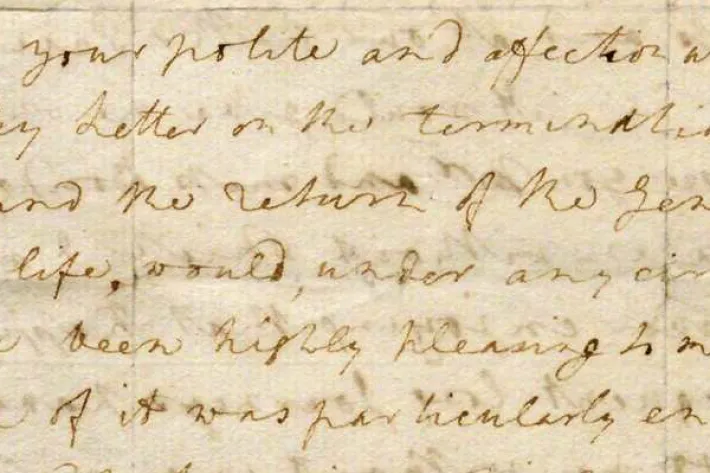 your polite and affection
letter on the terminatio
and the return of the Gen
life, would, under any cir
been highly pleasing to m
of it was particularly en